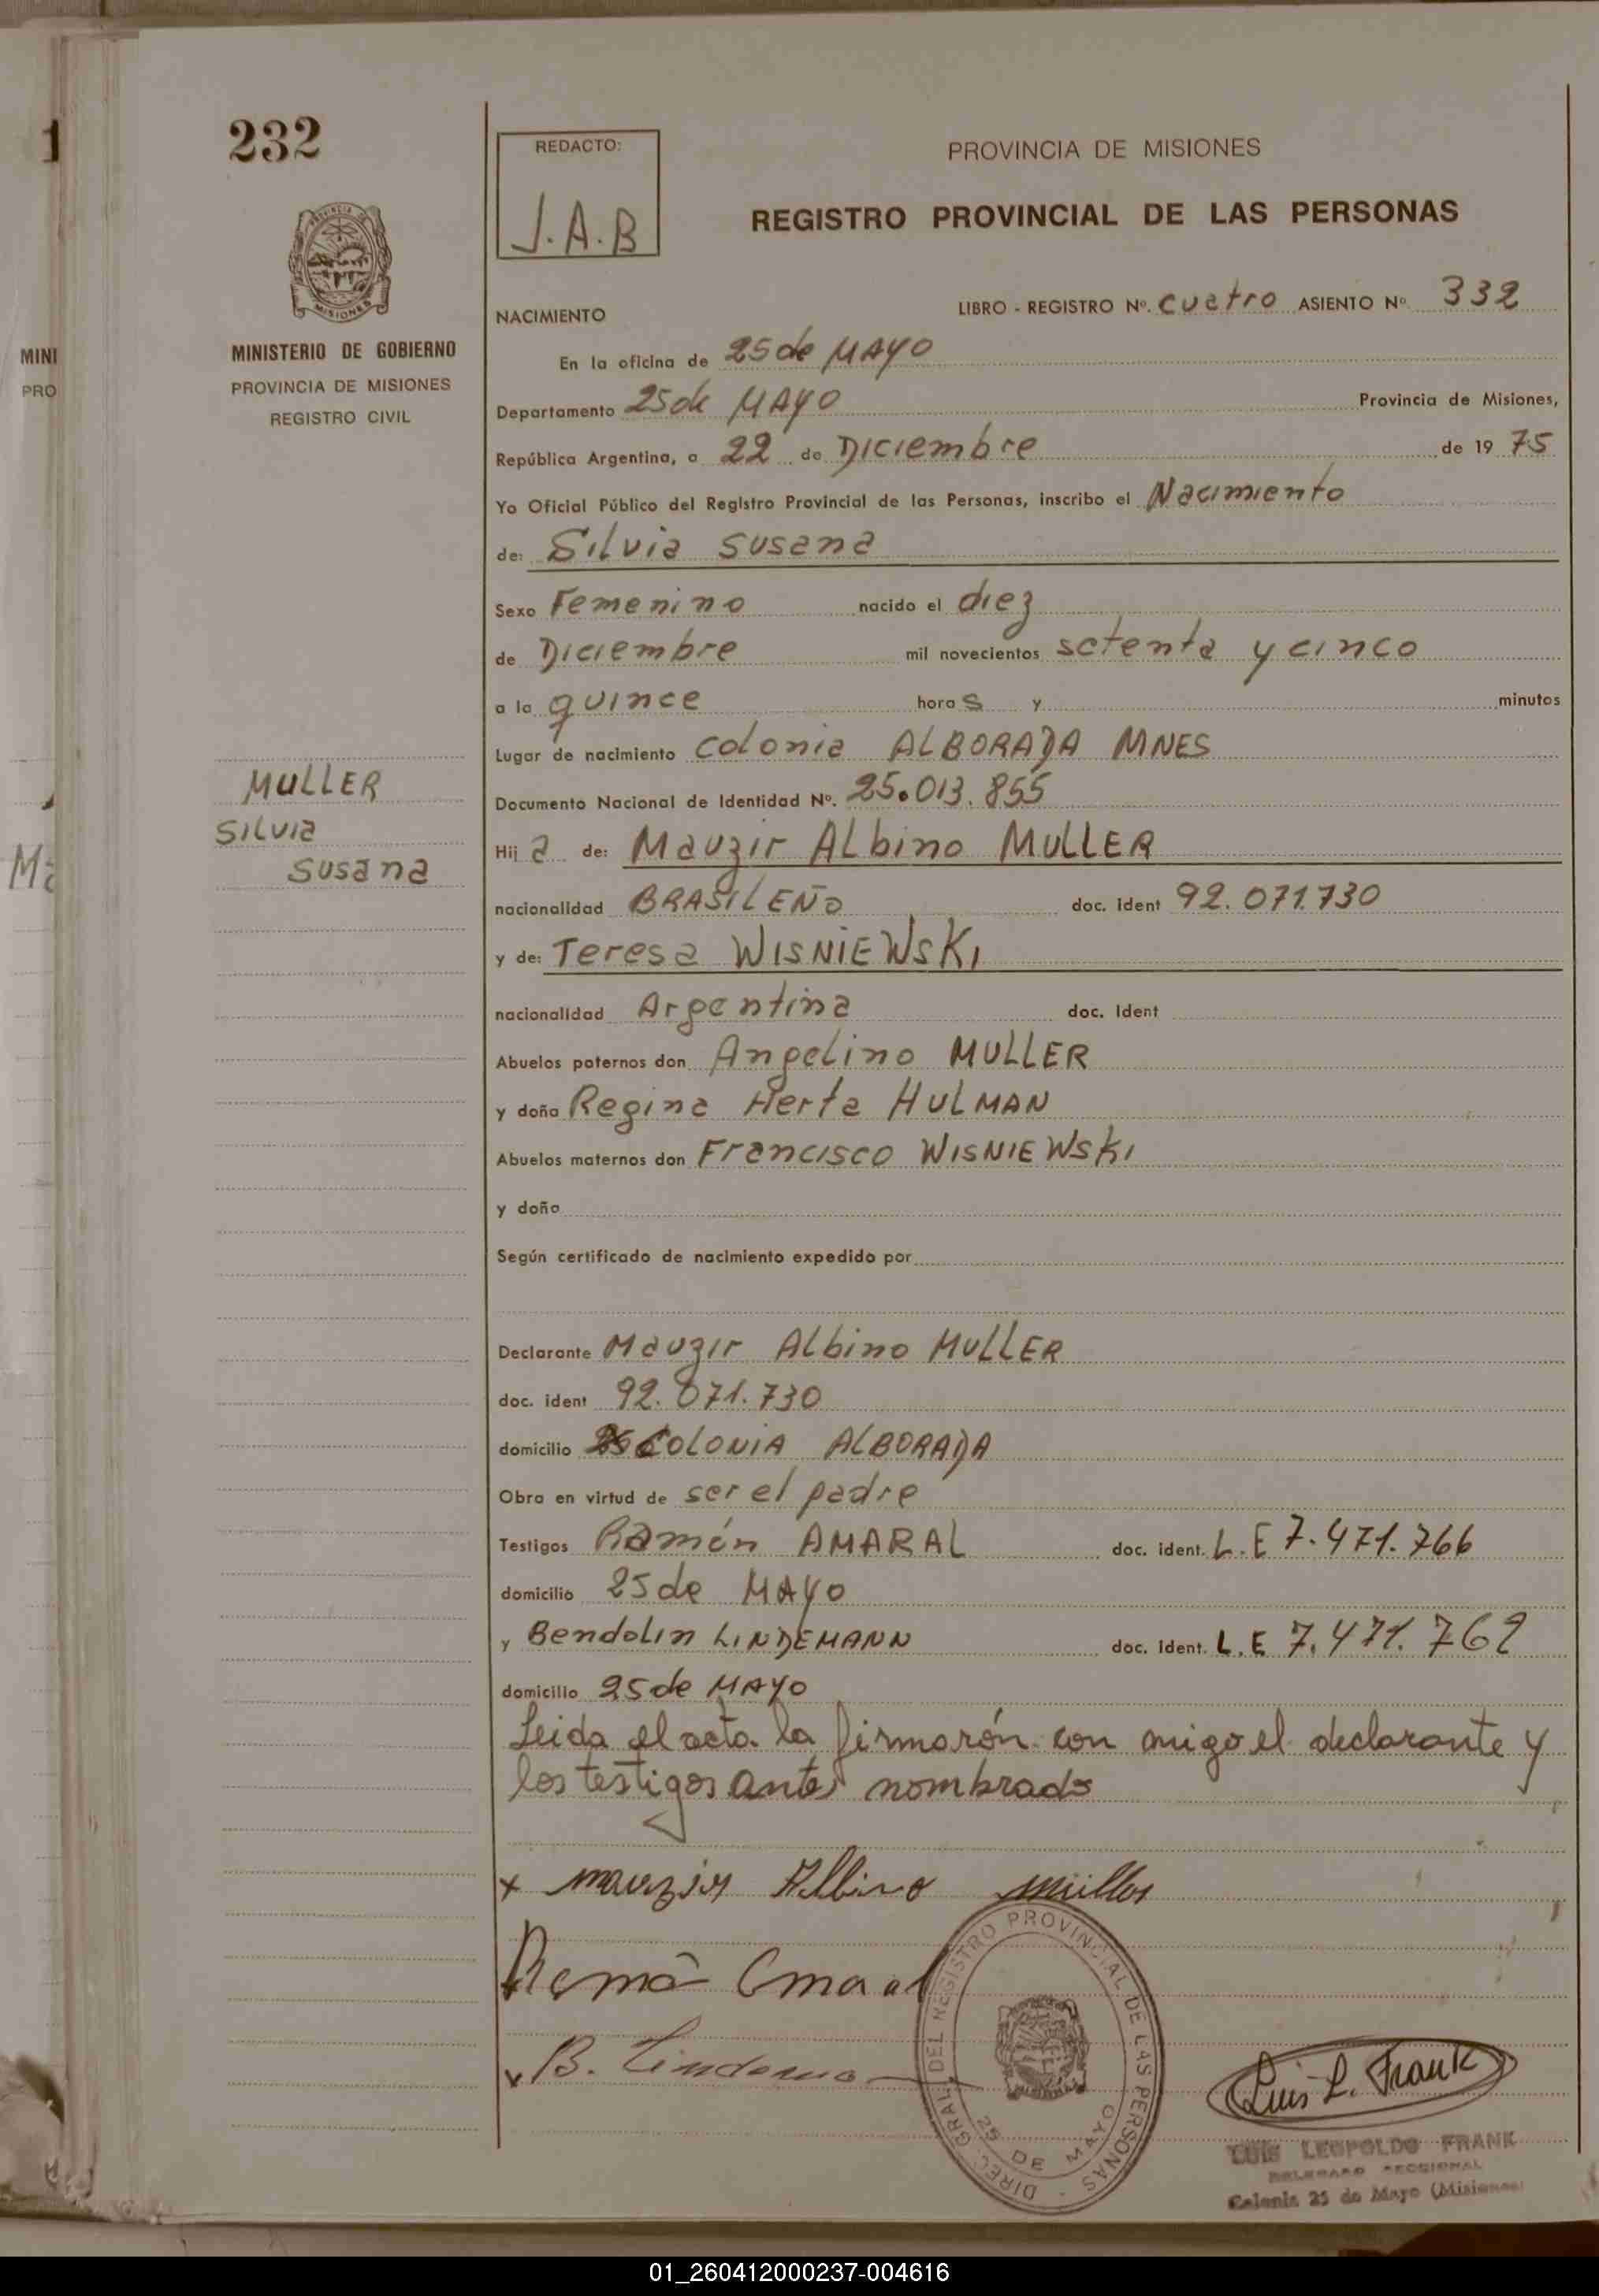 1
232
REDACTO:
J.A.B
PROVINCIA DE MISIONES
REGISTRO PROVINCIAL DE LAS PERSONAS
PROVINCIA DE
MISIONES
MINISTERIO DE GOBIERNO
PROVINCIA DE MISIONES
REGISTRO CIVIL
MINI
PRO
NACIMIENTO
LIBRO - REGISTRO Nº. cuatro ASIENTO Nº. 332
En la oficina de 25 de MAYO
Departamento 25 de MAYO Provincia de Misiones,
República Argentina, a 22 de Diciembre de 19 75
Yo Oficial Público del Registro Provincial de las Personas, inscribo el Nacimiento
de: Silvia Susana
Sexo Femenino nacido el diez
de Diciembre mil novecientos setenta y cinco
a la quince horas y minutos
Lugar de nacimiento colonia ALBORADA MNES
MULLER
Silvia
Susana
Ma
Documento Nacional de Identidad Nº. 25.013.855
Hija de: Mauzir Albino MULLER
nacionalidad BRASILEÑO doc. ident 92.071.730
y de: Teresa WISNIEWSKI
nacionalidad Argentina doc. Ident
Abuelos paternos don Angelino MULLER
y doña Regina Herta HULMAN
Abuelos maternos don Francisco WISNIEWSKI
y doña
Según certificado de nacimiento expedido por
Declarante Mauzir Albino MULLER
doc. ident 92.071.730
domicilio COLONIA ALBORADA
Obra en virtud de ser el padre
Testigos Ramón AMARAL doc. ident. L.E 7.471.766
domicilio 25 de MAYO
y Bendolin LINDEMANN doc. Ident. L.E 7.471.769
domicilio 25 de MAYO
Leida el acta la firmarón con migo el declarante y
los testigos antes nombrado
x mauzir Albino müller
Ramõ Amaral
v B. Lindema
DIREC. GRAL. DEL REGISTRO PROVINCIAL DE LAS PERSONAS -
25 DE MAYO
Luis L. Frank
LUIS LEOPOLDO FRANK
DELEGADO SECCIONAL
Colonia 25 de Mayo (Misiones)
01_260412000237-004616